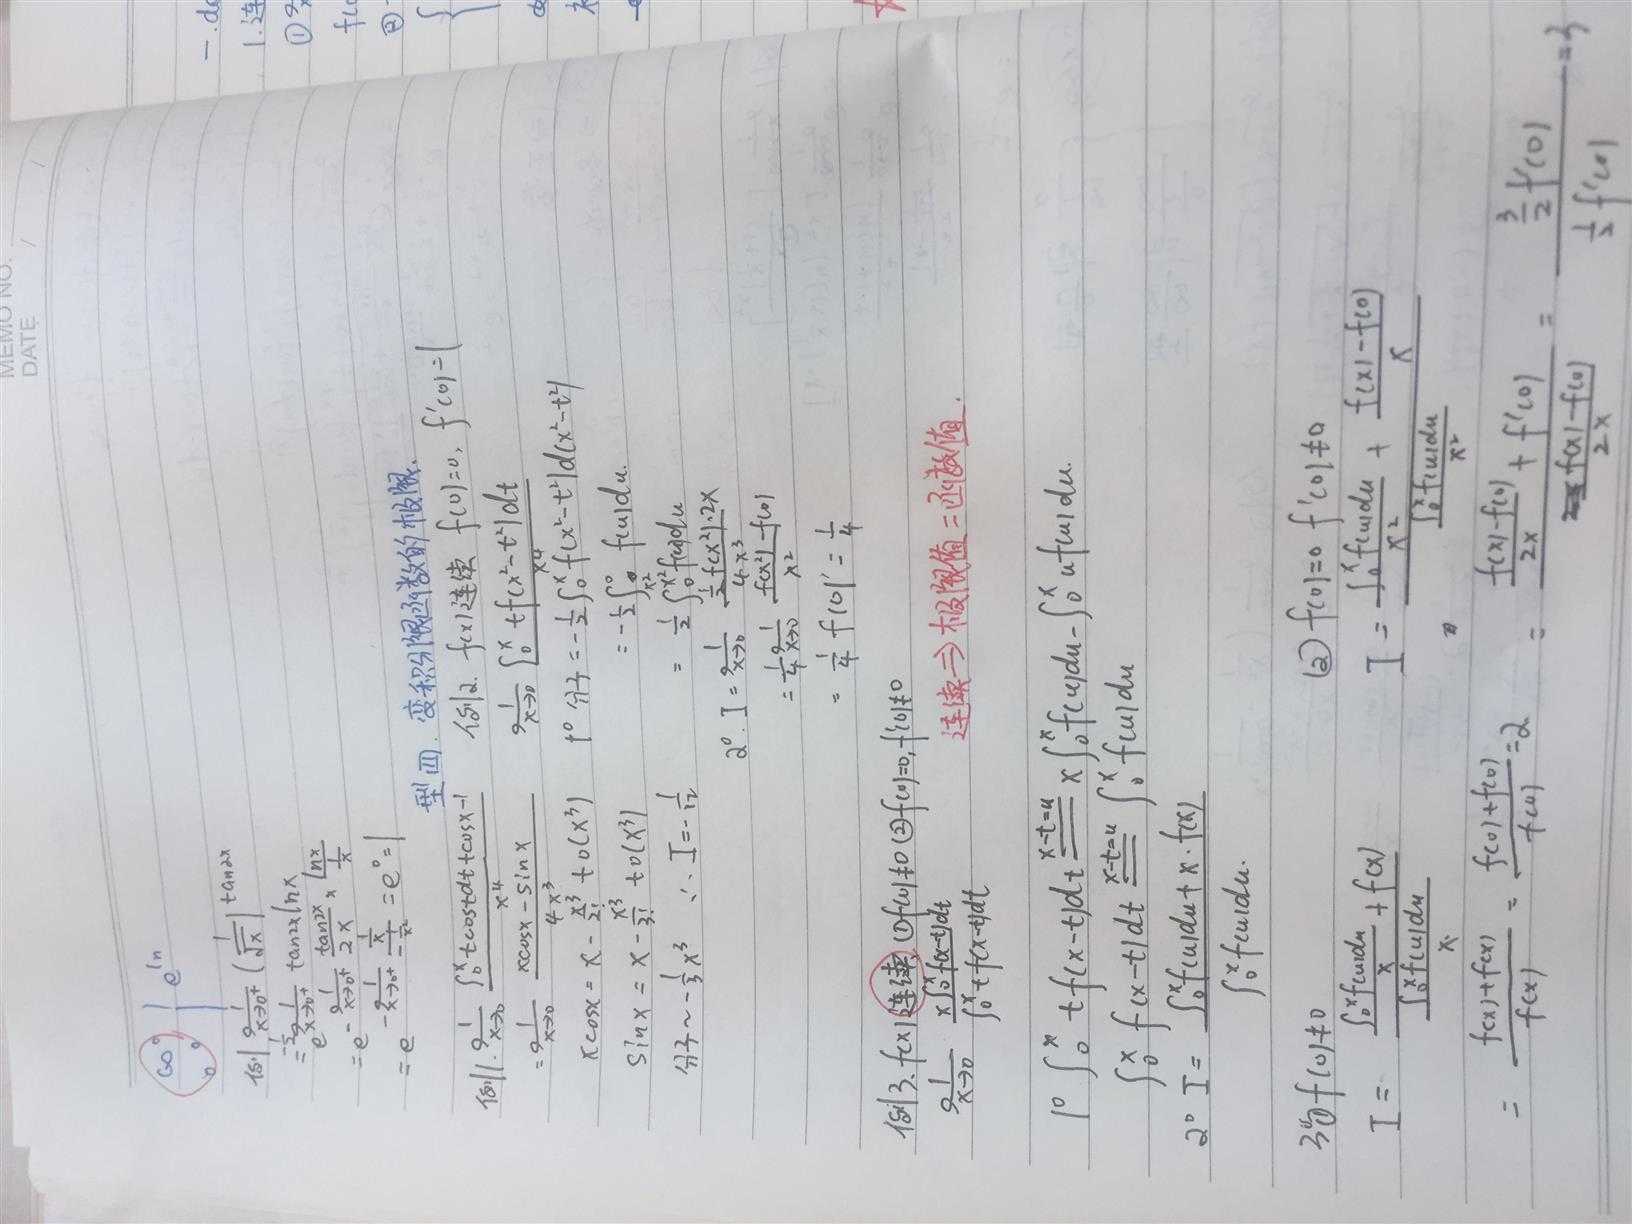 MEMO NO.
DATE / /
∞⁰ 0⁰ } e^ln
例 lim_{x→0+} (1/√x)^tan2x
= e^{-1/2 lim_{x→0+} tan2x lnx}
= e^{-lim_{x→0+} tan2x/2x × lnx/(1/x)}
= e^{-lim_{x→0+} (1/x)/(-1/x²)} = e⁰ = 1
型四. 变积分限函数的极限.
例1. lim_{x→0} (∫₀ˣ tcostdt+cosx-1)/x⁴
= lim_{x→0} (xcosx-sinx)/4x³
xcosx = x - x³/2! + o(x³)
sinx = x - x³/3! + o(x³)
分子~ -1/3 x³ ∴ I = -1/12
例2. f(x)连续 f(0)=0, f'(0)=1
lim_{x→0} ∫₀ˣ tf(x²-t²)dt / x⁴
1° 分子 = -1/2 ∫₀ˣ f(x²-t²)d(x²-t²)
= -1/2 ∫_{x²}^0 f(u)du.
= 1/2 ∫₀^{x²} f(u)du
2°. I = lim_{x→0} (1/2 f(x²)·2x)/4x³
= 1/4 lim_{x→0} (f(x²)-f(0))/x²
= 1/4 f'(0) = 1/4
例3. f(x)连续, ①f(0)≠0 ②f(0)=0, f'(0)≠0
lim_{x→0} x∫₀ˣ f(x-t)dt / ∫₀ˣ tf(x-t)dt
连续 ⇒ 极限值=函数值.
1° ∫₀ˣ t f(x-t)dt x-t=u x∫₀ˣ f(u)du - ∫₀ˣ uf(u)du.
∫₀ˣ f(x-t)dt x-t=u ∫₀ˣ f(u)du
2° I = (∫₀ˣ f(u)du + x·f(x)) / ∫₀ˣ f(u)du.
3° ① f(0)≠0
I = (∫₀ˣ f(u)du/x + f(x)) / (∫₀ˣ f(u)du/x)
= (f(x)+f(x))/f(x) = (f(0)+f(0))/f(0) = 2
② f(0)=0 f'(0)≠0
I = (∫₀ˣ f(u)du/x² + (f(x)-f(0))/x) / (∫₀ˣ f(u)du/x²)
= ((f(x)-f(0))/2x + f'(0)) / ((f(x)-f(0))/2x) = (3/2 f'(0))/(1/2 f'(0)) = 3